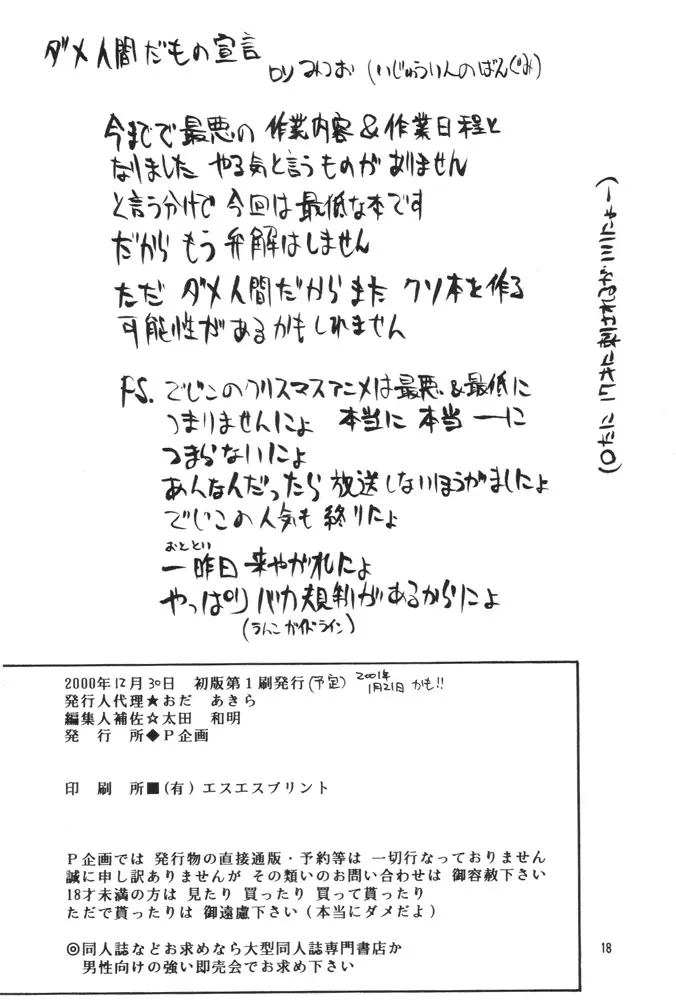 ダメ人間だもの宣言
by みつお (いじゅういんのばんぐみ)
今までで最悪の 作業内容&作業日程と
なりました やる気と言うものがありません
と言う分けで 今回は最低な本です
だから もう弁解はしません
ただ ダメ人間だからまた クソ本を作る
可能性があるかもしれません
P.S. でじこのクリスマスアニメは最悪&最低に
つまりませんにょ 本当に 本当ーーに
つまらないにょ
あんなんだったら 放送しないほうがましにょ
でじこの人気も 終りにょ
おととい
一昨日 来やがれにょ
やっぱり バカ規制があるからにょ
(うんこガイドライン)
2000年12月30日 初版第1刷発行(予定) 2001年
1月21日 かも!!
発行人代理★おだ あきら
編集人補佐☆太田 和明
発 行 所◆P企画
印 刷 所■(有) エスエスプリント
P企画では 発行物の直接通販・予約等は 一切行なっておりません
誠に申し訳ありませんが その類いのお問い合わせは 御容赦下さい
18才未満の方は 見たり 買ったり 買って貰ったり
ただで貰ったりは 御遠慮下さい(本当にダメだよ)
◎同人誌などお求めなら大型同人誌専門書店か
男性向けの強い即売会でお求め下さい
18